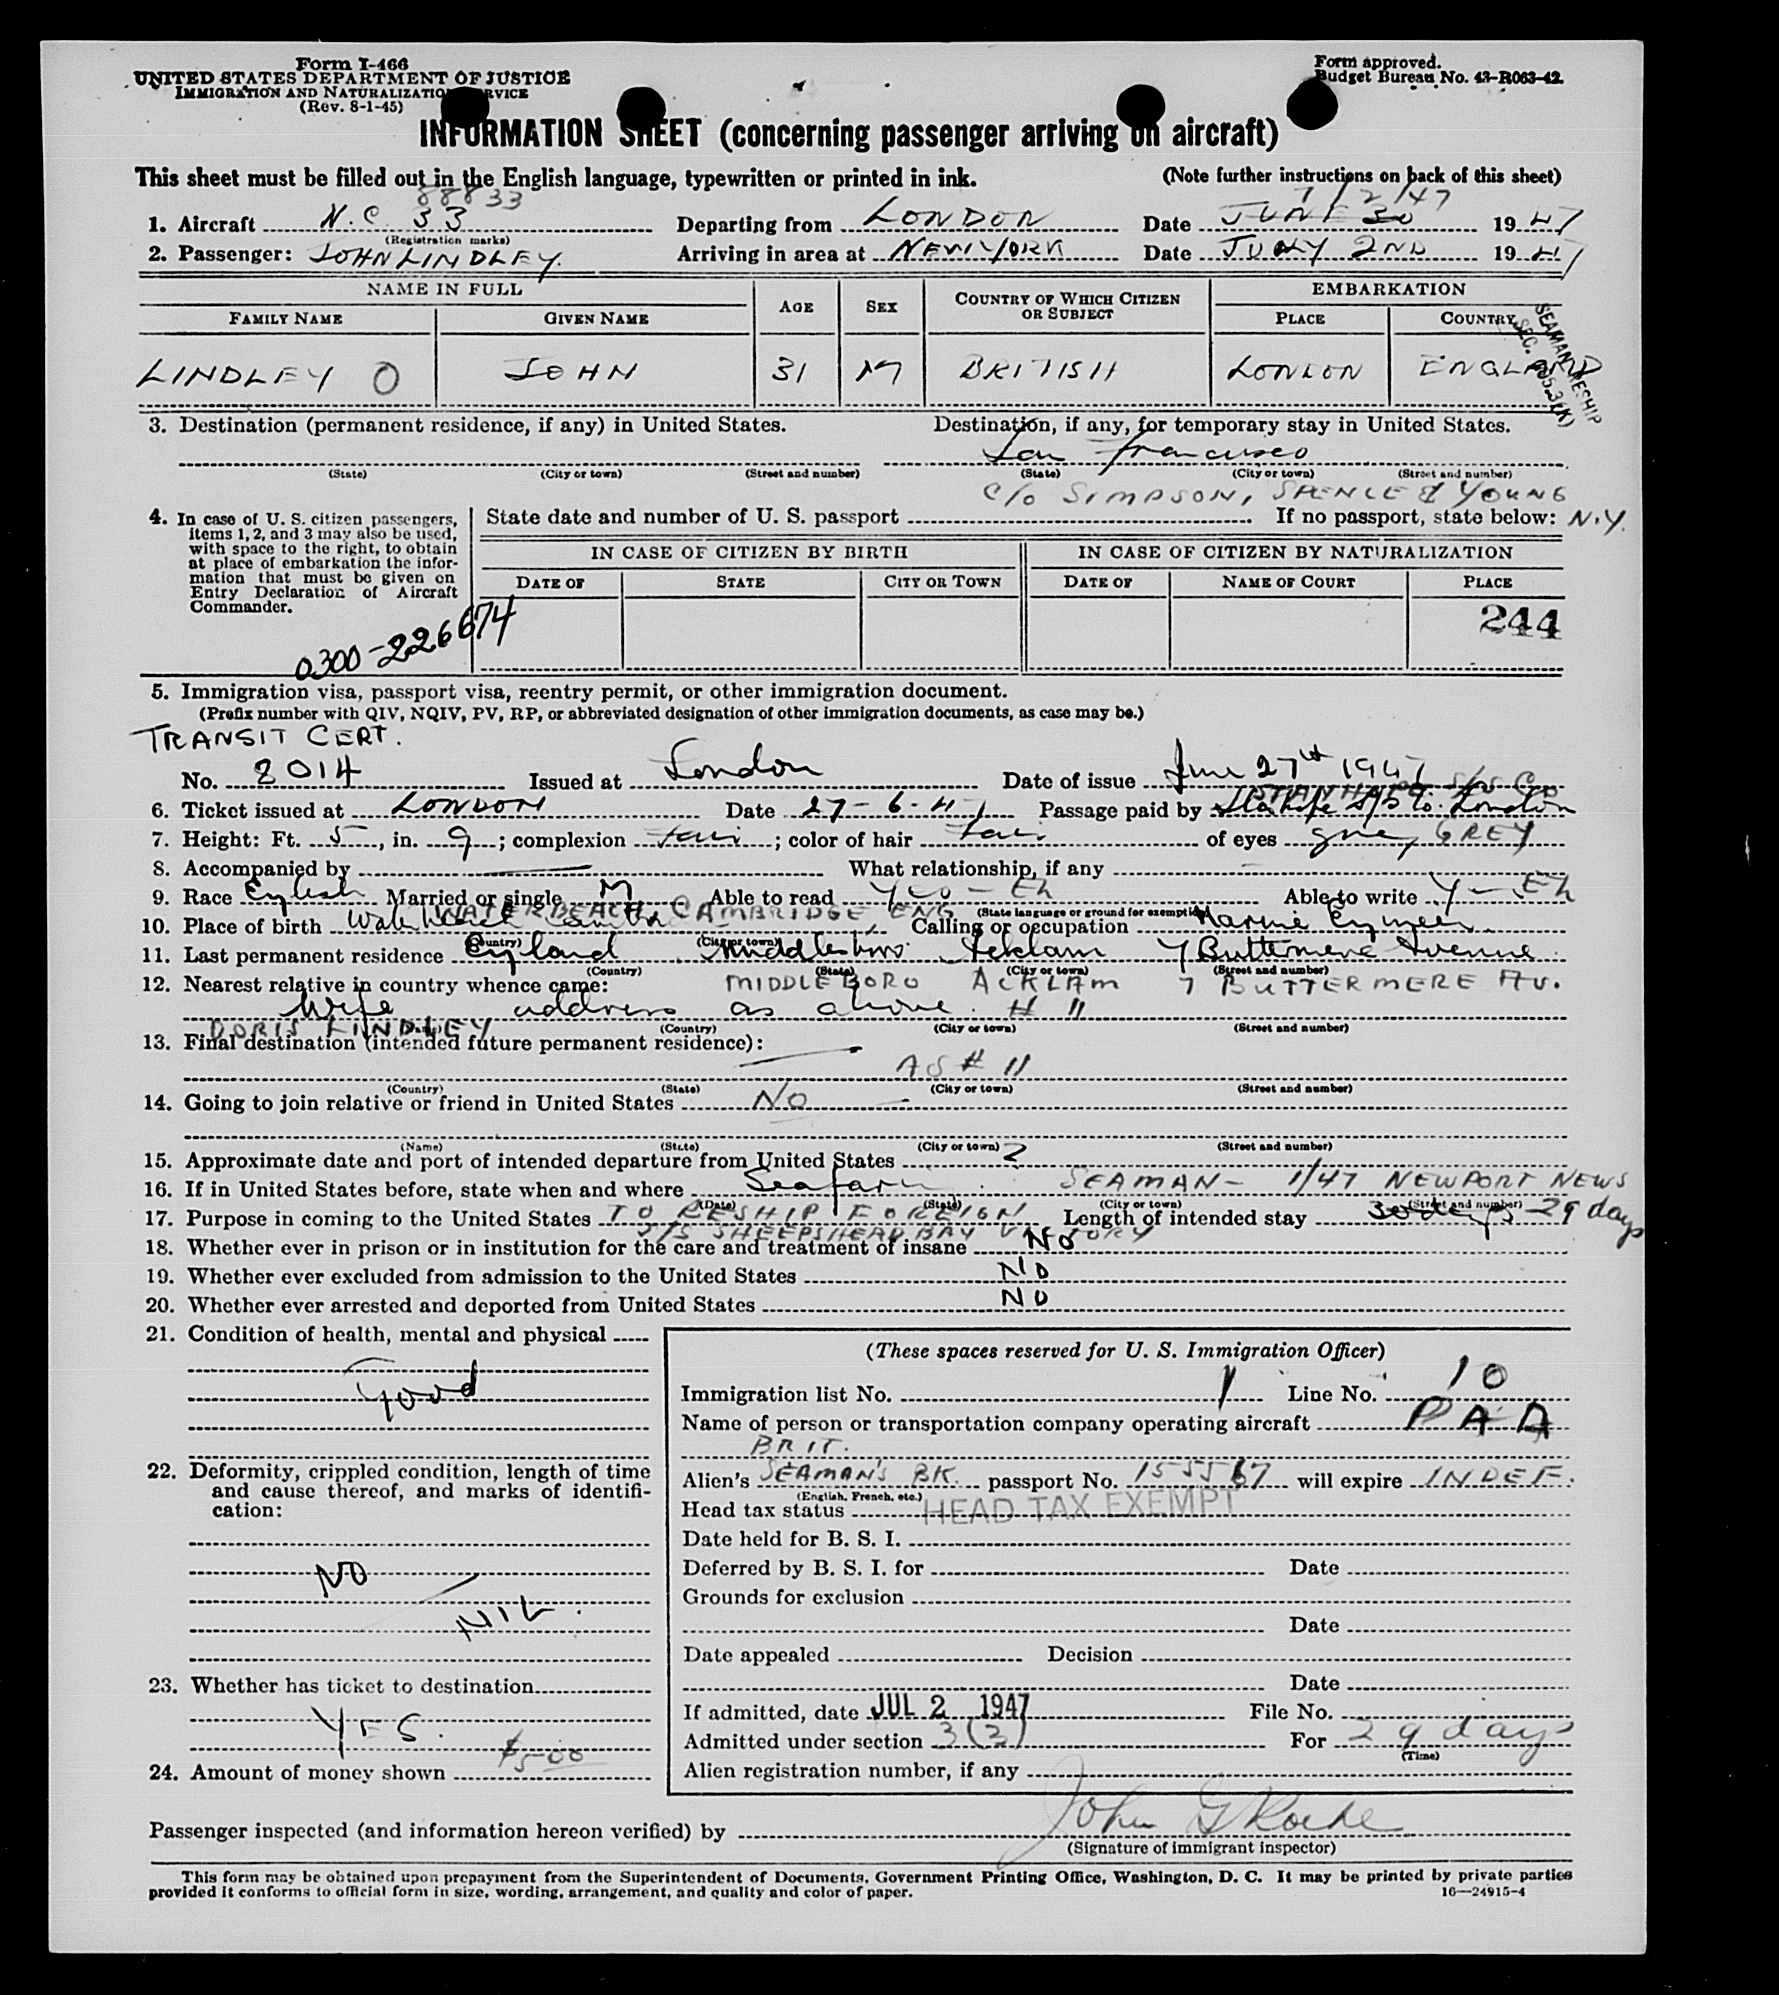 Form I-466
UNITED STATES DEPARTMENT OF JUSTICE
IMMIGRATION AND NATURALIZATION SERVICE
(Rev. 8-1-45)
Form approved.
Budget Bureau No. 43-R063-42.
INFORMATION SHEET (concerning passenger arriving on aircraft)
This sheet must be filled out in the English language, typewritten or printed in ink. (Note further instructions on back of this sheet)
88833 7/2/47
1. Aircraft N.C. 33 Departing from LONDON Date JUNE 30 1947
(Registration marks)
2. Passenger: JOHN LINDLEY. Arriving in area at NEW YORK Date JULY 2ND 1947
NAME IN FULL AGE SEX COUNTRY OF WHICH CITIZEN OR SUBJECT EMBARKATION
FAMILY NAME GIVEN NAME PLACE COUNTRY
LINDLEY O JOHN 31 M BRITISH LONDON ENGLAND
SEAMAN RESHIP
SEC.
3. Destination (permanent residence, if any) in United States. Destination, if any, for temporary stay in United States.
San Francisco
(State) (City or town) (Street and number) (State) (City or town) (Street and number)
C/o SIMPSON, SPENCE & YOUNG
N.Y.
4. In case of U. S. citizen passengers, items 1, 2, and 3 may also be used, with space to the right, to obtain at place of embarkation the information that must be given on Entry Declaration of Aircraft Commander.
State date and number of U. S. passport If no passport, state below:
IN CASE OF CITIZEN BY BIRTH IN CASE OF CITIZEN BY NATURALIZATION
DATE OF STATE CITY OR TOWN DATE OF NAME OF COURT PLACE
244
0300-226674
5. Immigration visa, passport visa, reentry permit, or other immigration document.
(Prefix number with QIV, NQIV, PV, RP, or abbreviated designation of other immigration documents, as case may be.)
TRANSIT CERT.
No. 8014 Issued at London Date of issue June 27th 1947
6. Ticket issued at LONDON Date 27-6-47 Passage paid by S/S Co. London
7. Height: Ft. 5, in. 9; complexion Fair; color of hair Fair of eyes grey GREY
8. Accompanied by — What relationship, if any —
9. Race English Married or single M Able to read Yes - Eh Able to write Y - Eh
(State language or ground for exemption)
WATERBEACH, CAMBRIDGE ENG
10. Place of birth Waterbeach Cambs Calling or occupation Marine Engineer
(Country) (City or town)
11. Last permanent residence England Middlesboro Acklam 7 Buttermere Avenue
(Country) (State) (City or town) (Street and number)
12. Nearest relative in country whence came: MIDDLEBORO ACKLAM 7 BUTTERMERE AV.
Wife address as above. # 11
DORIS LINDLEY (Country) (City or town) (Street and number)
13. Final destination (intended future permanent residence): —
AS # 11
(Country) (State) (City or town) (Street and number)
14. Going to join relative or friend in United States NO —
(Name) (State) (City or town) (Street and number)
15. Approximate date and port of intended departure from United States ?
16. If in United States before, state when and where SEAMAN - 1/47 NEWPORT NEWS
(Date) (State) (City or town) (Street and number)
17. Purpose in coming to the United States TO RESHIP FOREIGN Length of intended stay 30 days 29 days
S/S SHEEPSHEAD BAY VICTORY
18. Whether ever in prison or in institution for the care and treatment of insane NO
19. Whether ever excluded from admission to the United States NO
20. Whether ever arrested and deported from United States NO
21. Condition of health, mental and physical
Good
22. Deformity, crippled condition, length of time and cause thereof, and marks of identification:
NO
NIL.
23. Whether has ticket to destination
YES.
24. Amount of money shown $5.00
(These spaces reserved for U. S. Immigration Officer)
Immigration list No. 1 Line No. 10
Name of person or transportation company operating aircraft PAA
BRIT.
Alien's SEAMAN'S BK. passport No. 155567 will expire INDEF.
(English, French, etc.)
Head tax status HEAD TAX EXEMPT
Date held for B. S. I.
Deferred by B. S. I. for Date
Grounds for exclusion
Date
Date appealed Decision
Date
If admitted, date JUL 2 1947 File No.
Admitted under section 3(3) For 29 days
(Time)
Alien registration number, if any
Passenger inspected (and information hereon verified) by John G Roche
(Signature of immigrant inspector)
This form may be obtained upon prepayment from the Superintendent of Documents, Government Printing Office, Washington, D. C. It may be printed by private parties
provided it conforms to official form in size, wording, arrangement, and quality and color of paper. 16—24915-4